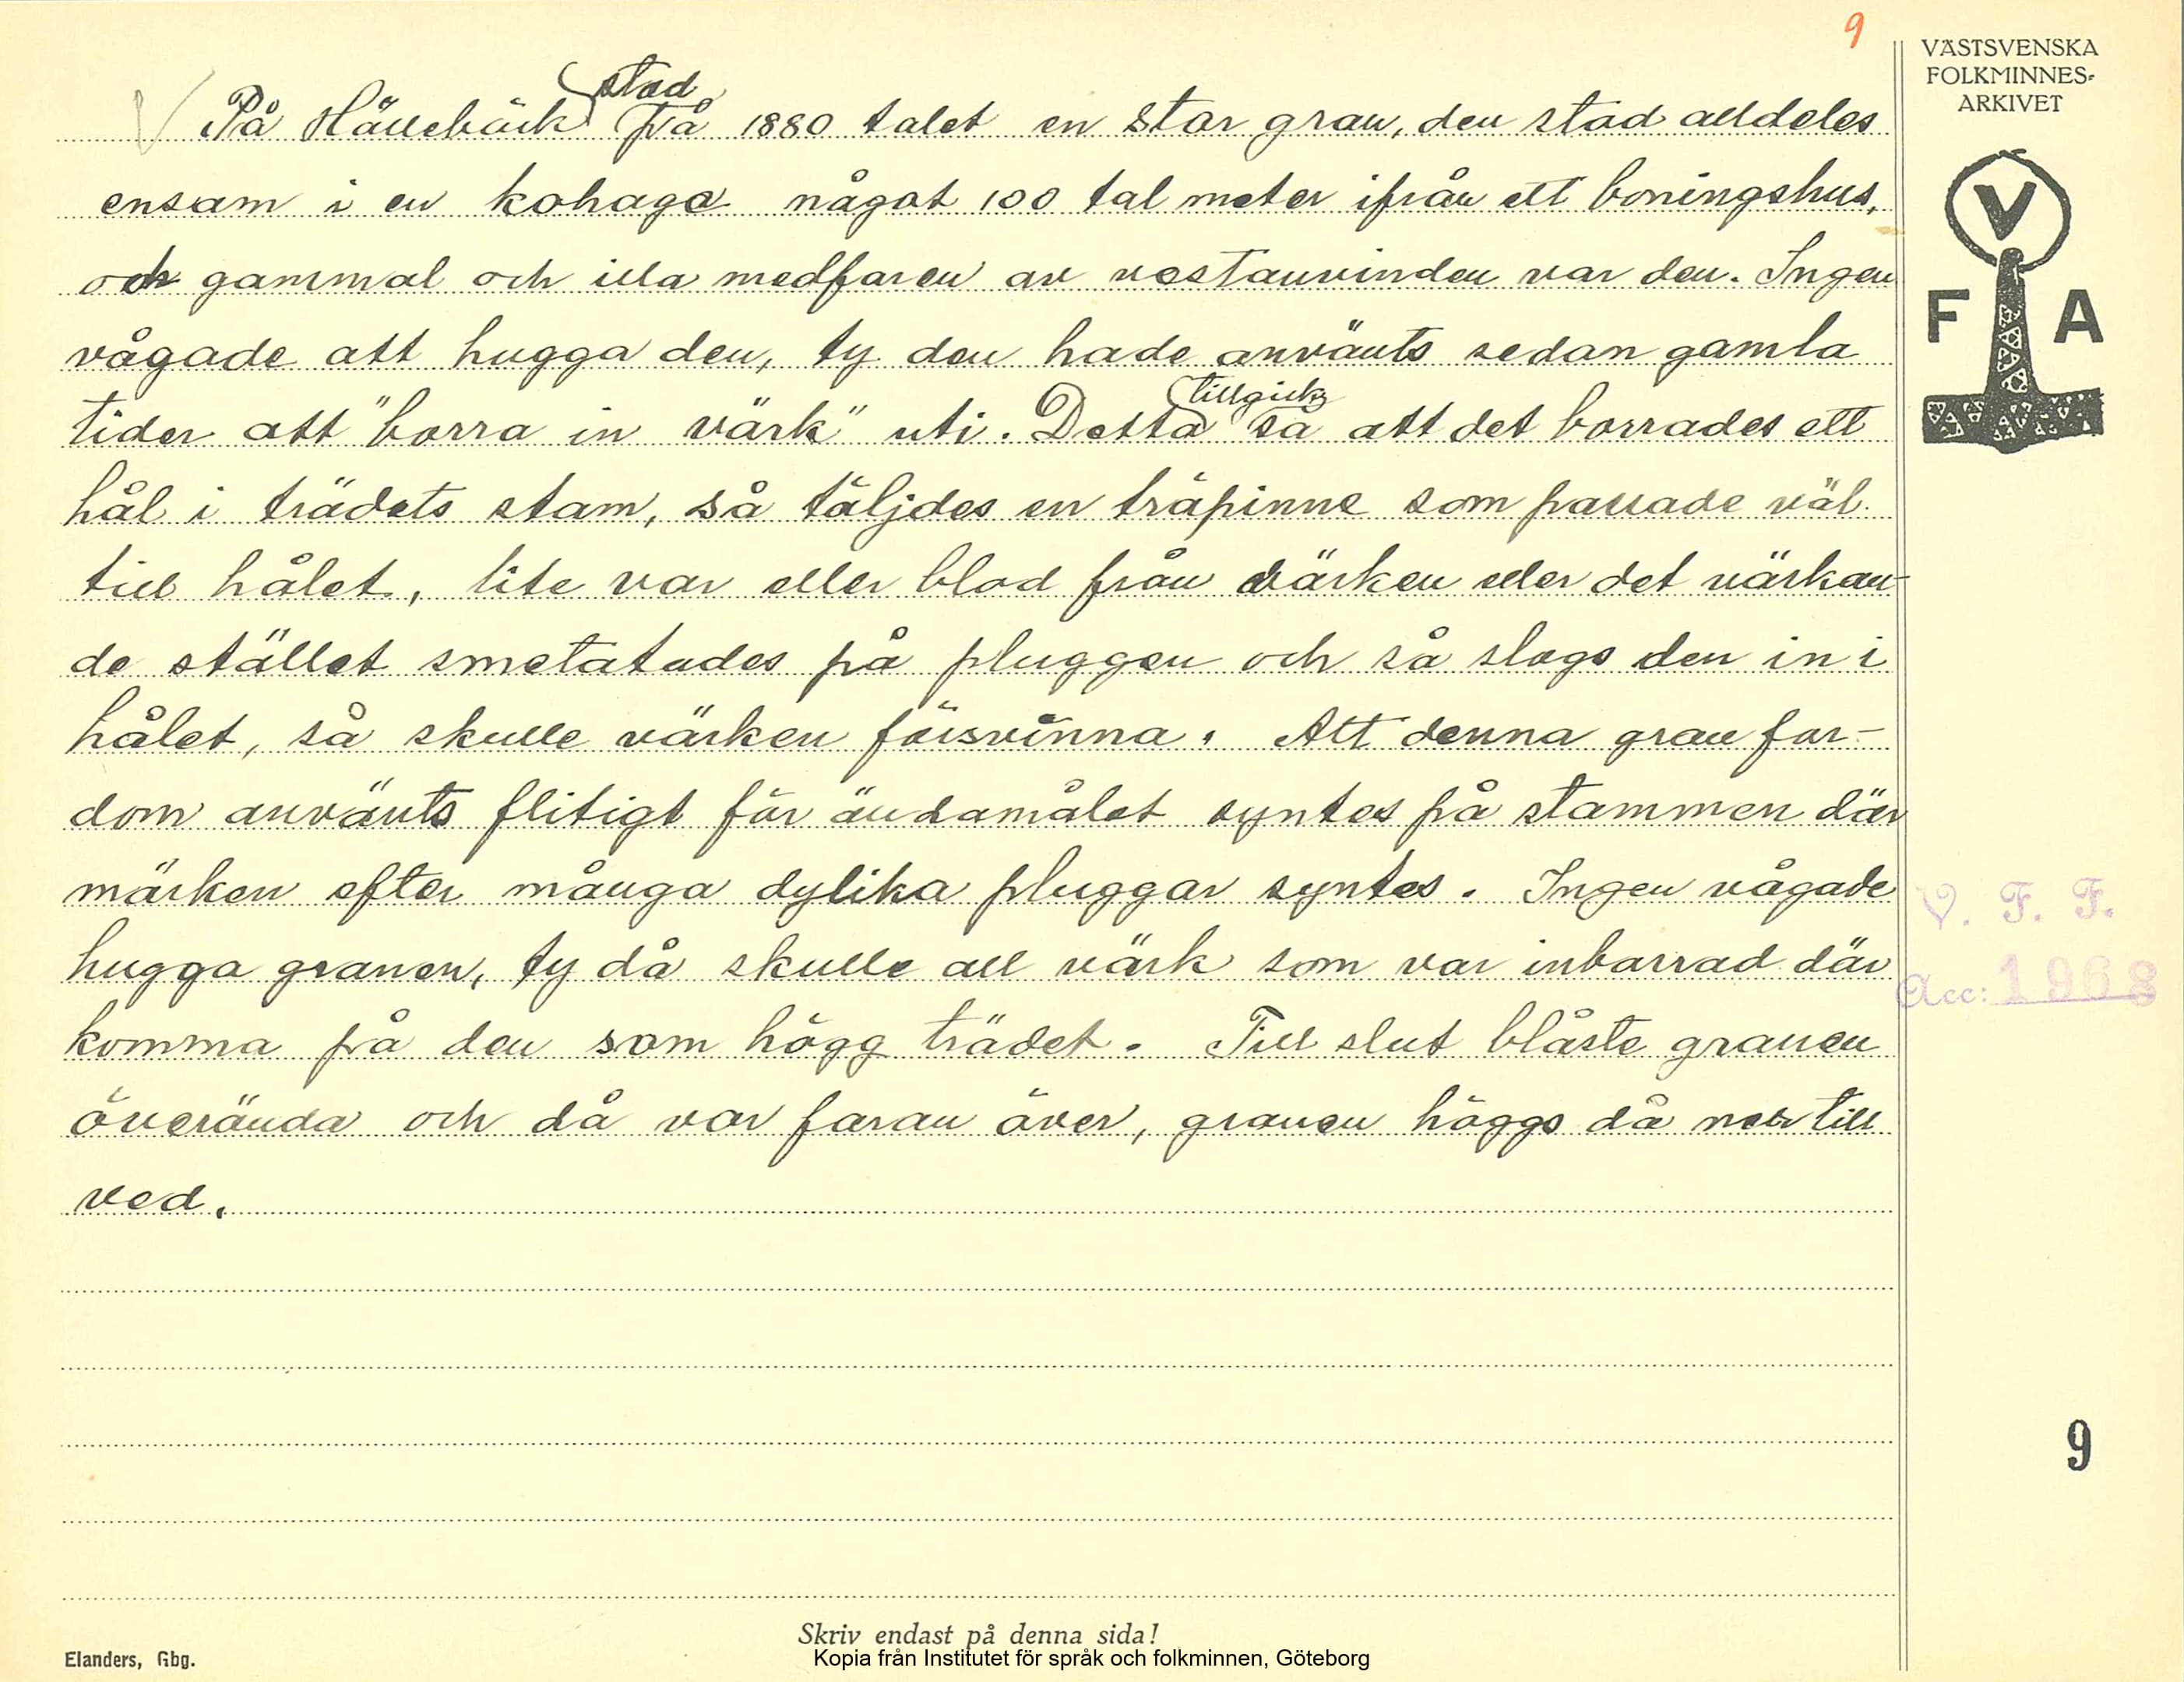 9
VÄSTSVENSKA
FOLKMINNES-
ARKIVET
V
F A
stod
På Hällebäck på 1880 talet en stor gran, den stod alldeles
ensam i en kohage något 100 tal meter ifrån ett boningshus,
och gammal och illa medfaren av vestanvinden var den. Ingen
vågade att hugga den, ty den hade använts sedan gamla
tillgick
tider att "borra in värk" uti. Detta så att det borrades ett
hål i trädets stam, så täljdes en träpinne som passade väl
till hålet, lite var eller blod från värken eller det värkan-
de stället smetatades på pluggen och så slogs den in i
hålet, så skulle värken försvinna. Att denna gran for-
dom använts flitigt för ändamålet syntes på stammen där
märken efter många dylika pluggar syntes. Ingen vågade
hugga granen, ty då skulle all värk som var inborrad där
komma på den som högg trädet. Till slut blåste granen
överända och då var faran över, granen höggs då ner till
ved.
V. F. F.
Acc: 1968
9
Skriv endast på denna sida!
Elanders, Gbg.
Kopia från Institutet för språk och folkminnen, Göteborg